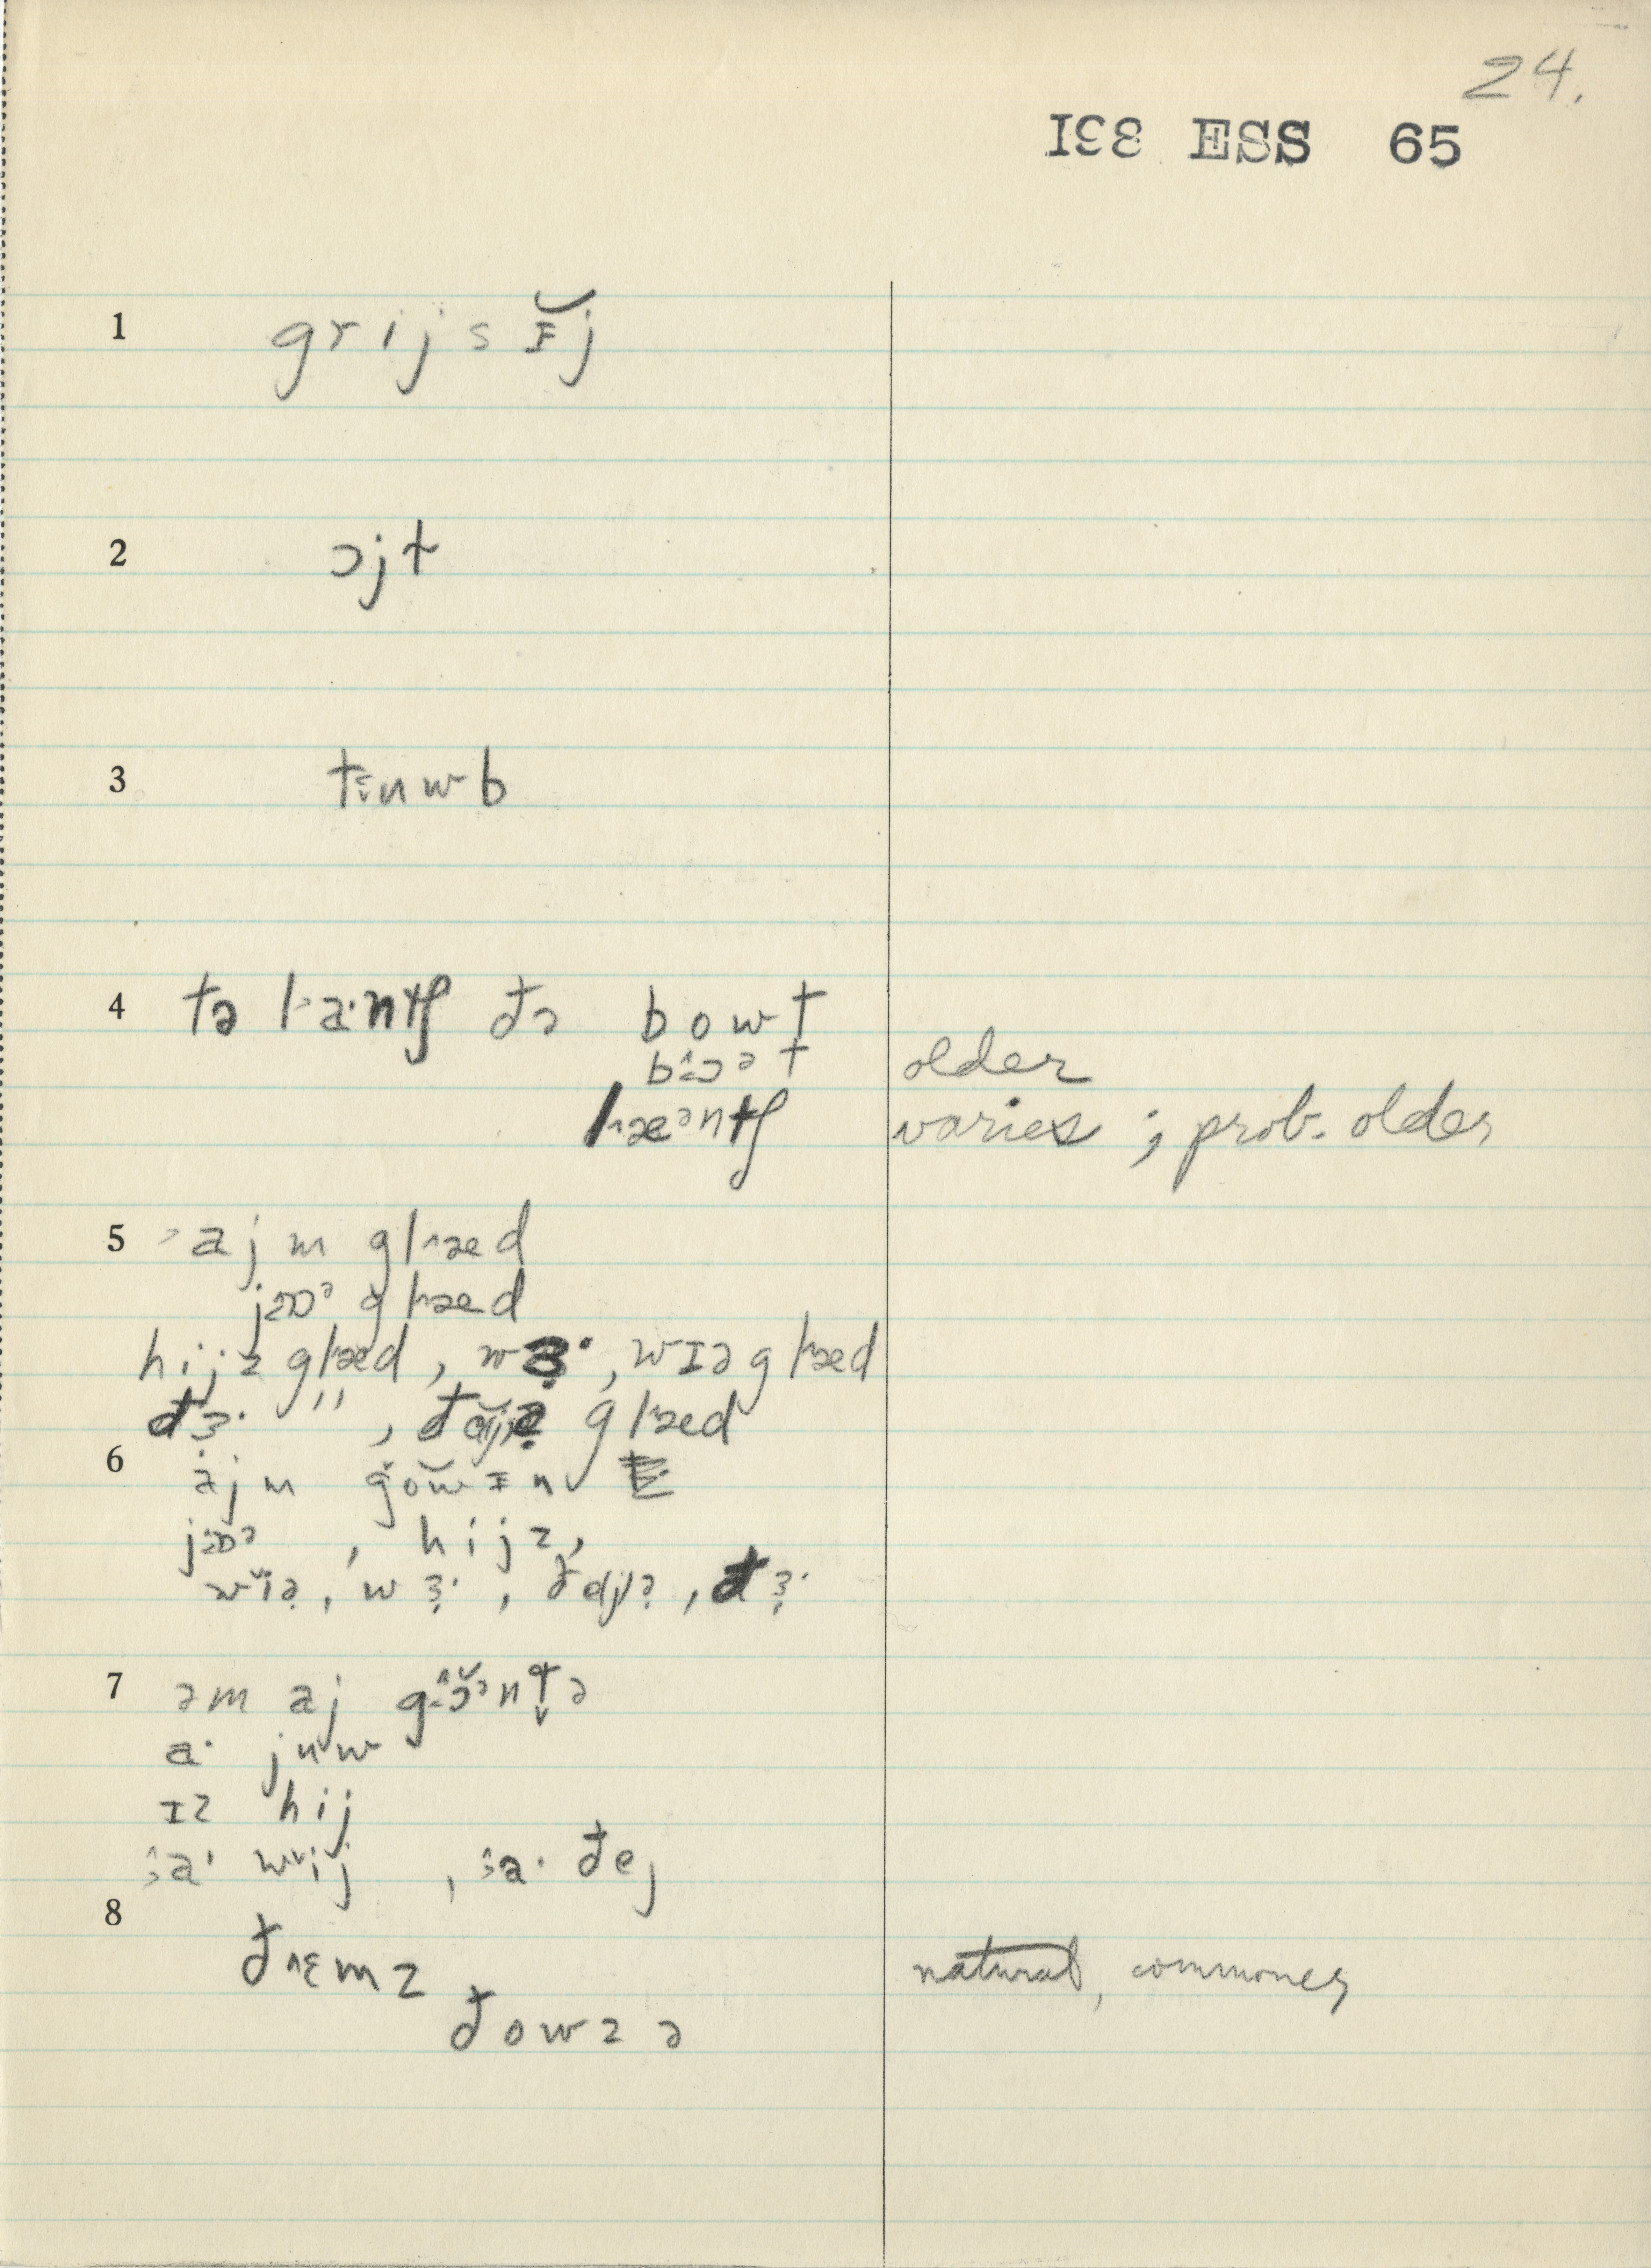 24.
I98 ESS 65
1 grijsᵻ̆j
2 ɔjt
3 tᵻʉwb
4 tə la·ntʃ ðə bowt
bɔət older
læᵊntʃ varies ; prob. older
5 ajm glæd
jɒᵊ glæd
hijz glæd, wɜ·, wɪə glæd
ðɜ· " , ðejə glæd
6 ajm gowᵻn
jɒᵊ , hijz,
wɪə, wɜ·, ðejə, ðɜ·
7 əm aj gɔᵊntə
a· jʉw
ɪz hij
ɜa· wij , ɜa· ðej
8 ðɛmz natural, commoner
ðowzə